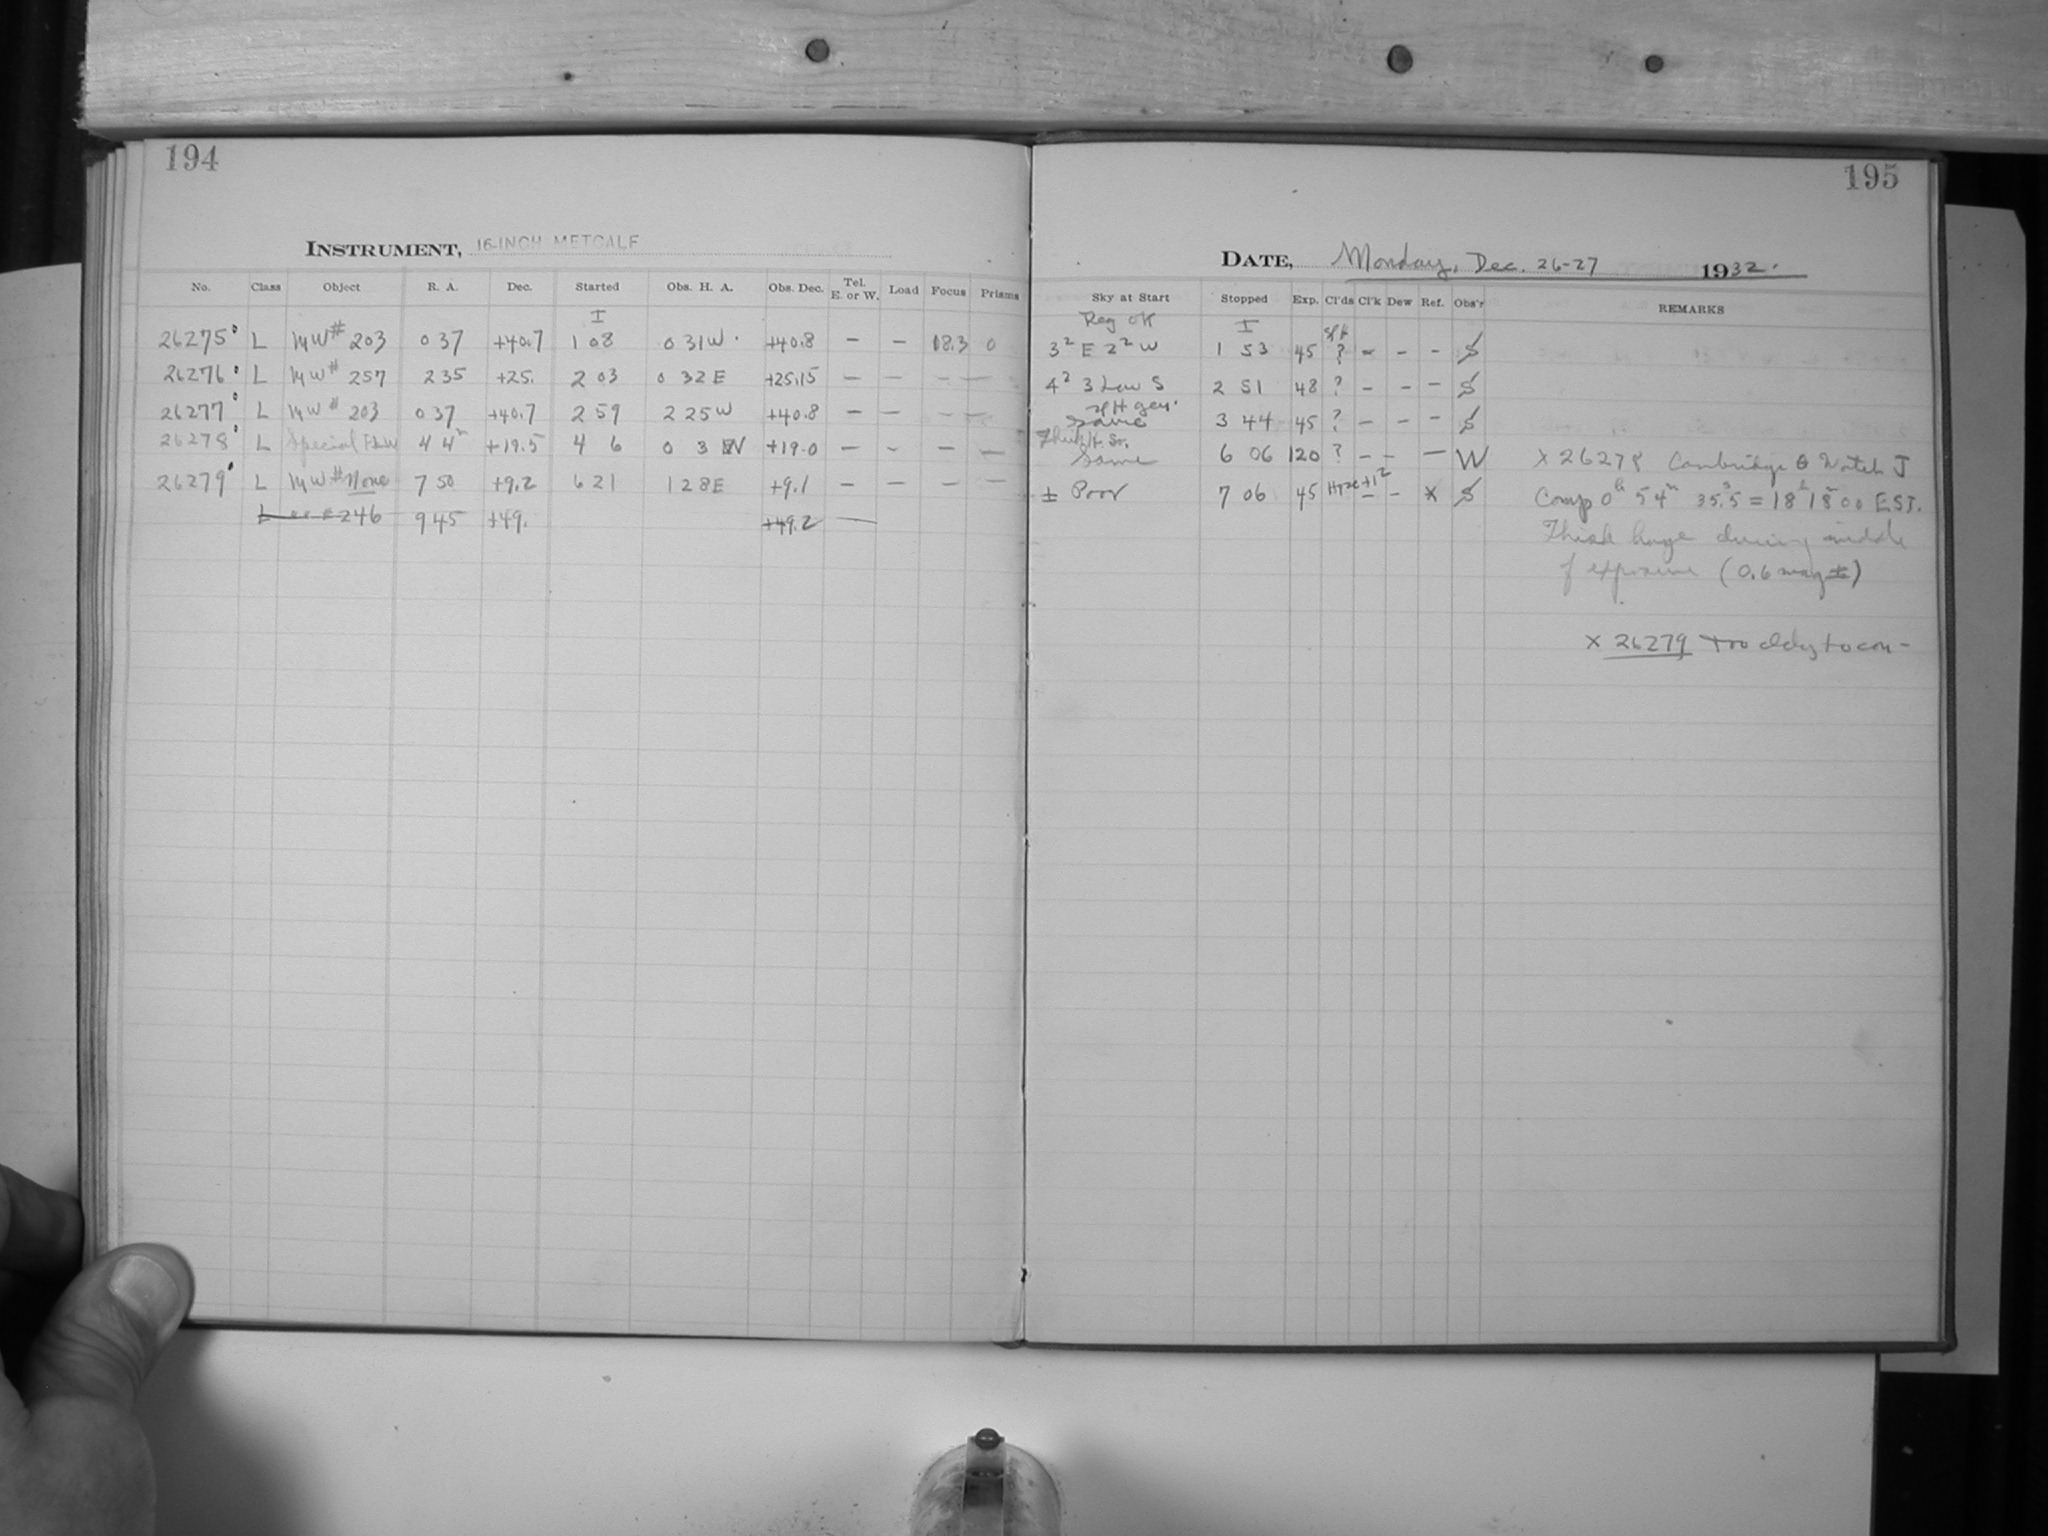 194
INSTRUMENT, 16-INCH METCALF
No. Class Object R. A. Dec. Started Obs. H. A. Obs. Dec. Tel. E. or W. Load Focus Prisms
I
26275 L MW# 203 0 37 +40.7 1 08 0 31 W. +40.8 — — 18.3 0
26276 L MW# 257 2 35 +25. 2 03 0 32 E +25.15 — — — —
26277 L MW# 203 0 37 +40.7 2 59 2 25 W +40.8 — — — —
26278 L Special 4 4m +19.5 4 6 0 3 W +19.0 — - — —
26279 L MW# None 7 50 +9.2 6 21 1 28 E +9.1 — — — —
L " " # 246 9 45 +49. +49.2 —
195
DATE, Monday, Dec. 26-27 1932.
Sky at Start Stopped Exp. Cl'ds Cl'k Dew Ref. Obs'r REMARKS
Reg OK I
3² E 2² W 1 53 45 ? - - - S
4² 3 Low S 2 51 48 ? - - - S
Same 3 44 45 ? - - - S
Same 6 06 120 ? - - — W
± Poor 7 06 45 Haze +1² - - X S
X 26278 Cambridge θ Watch J
Comp 0h 54m 35.s5 = 18h 18m 00 EST.
Thick haze during middle
of exposure (0.6 mag ±)
X 26279 Too cldy to con-